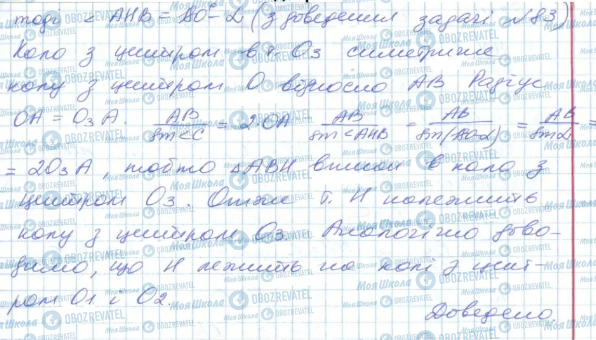 тоді ∠AHB = 180°-α (з доведення задачі №83)
Коло з центром в т. O₃ симетричне
колу з центром O відносно AB Радіус
OA = O₃A. AB/sin<C = 2OA AB/sin<AHB = AB/sin(180-α) = AB/sinα =
= 2O₃A, тобто △ABH вписан в коло з
центром O₃. Отже т. H належить
колу з центром O₃. Аналогічно дово-
димо, що H лежить на колі з цент-
ром O₁ і O₂.
Доведено.
Моя Школа
OBOZREVATEL